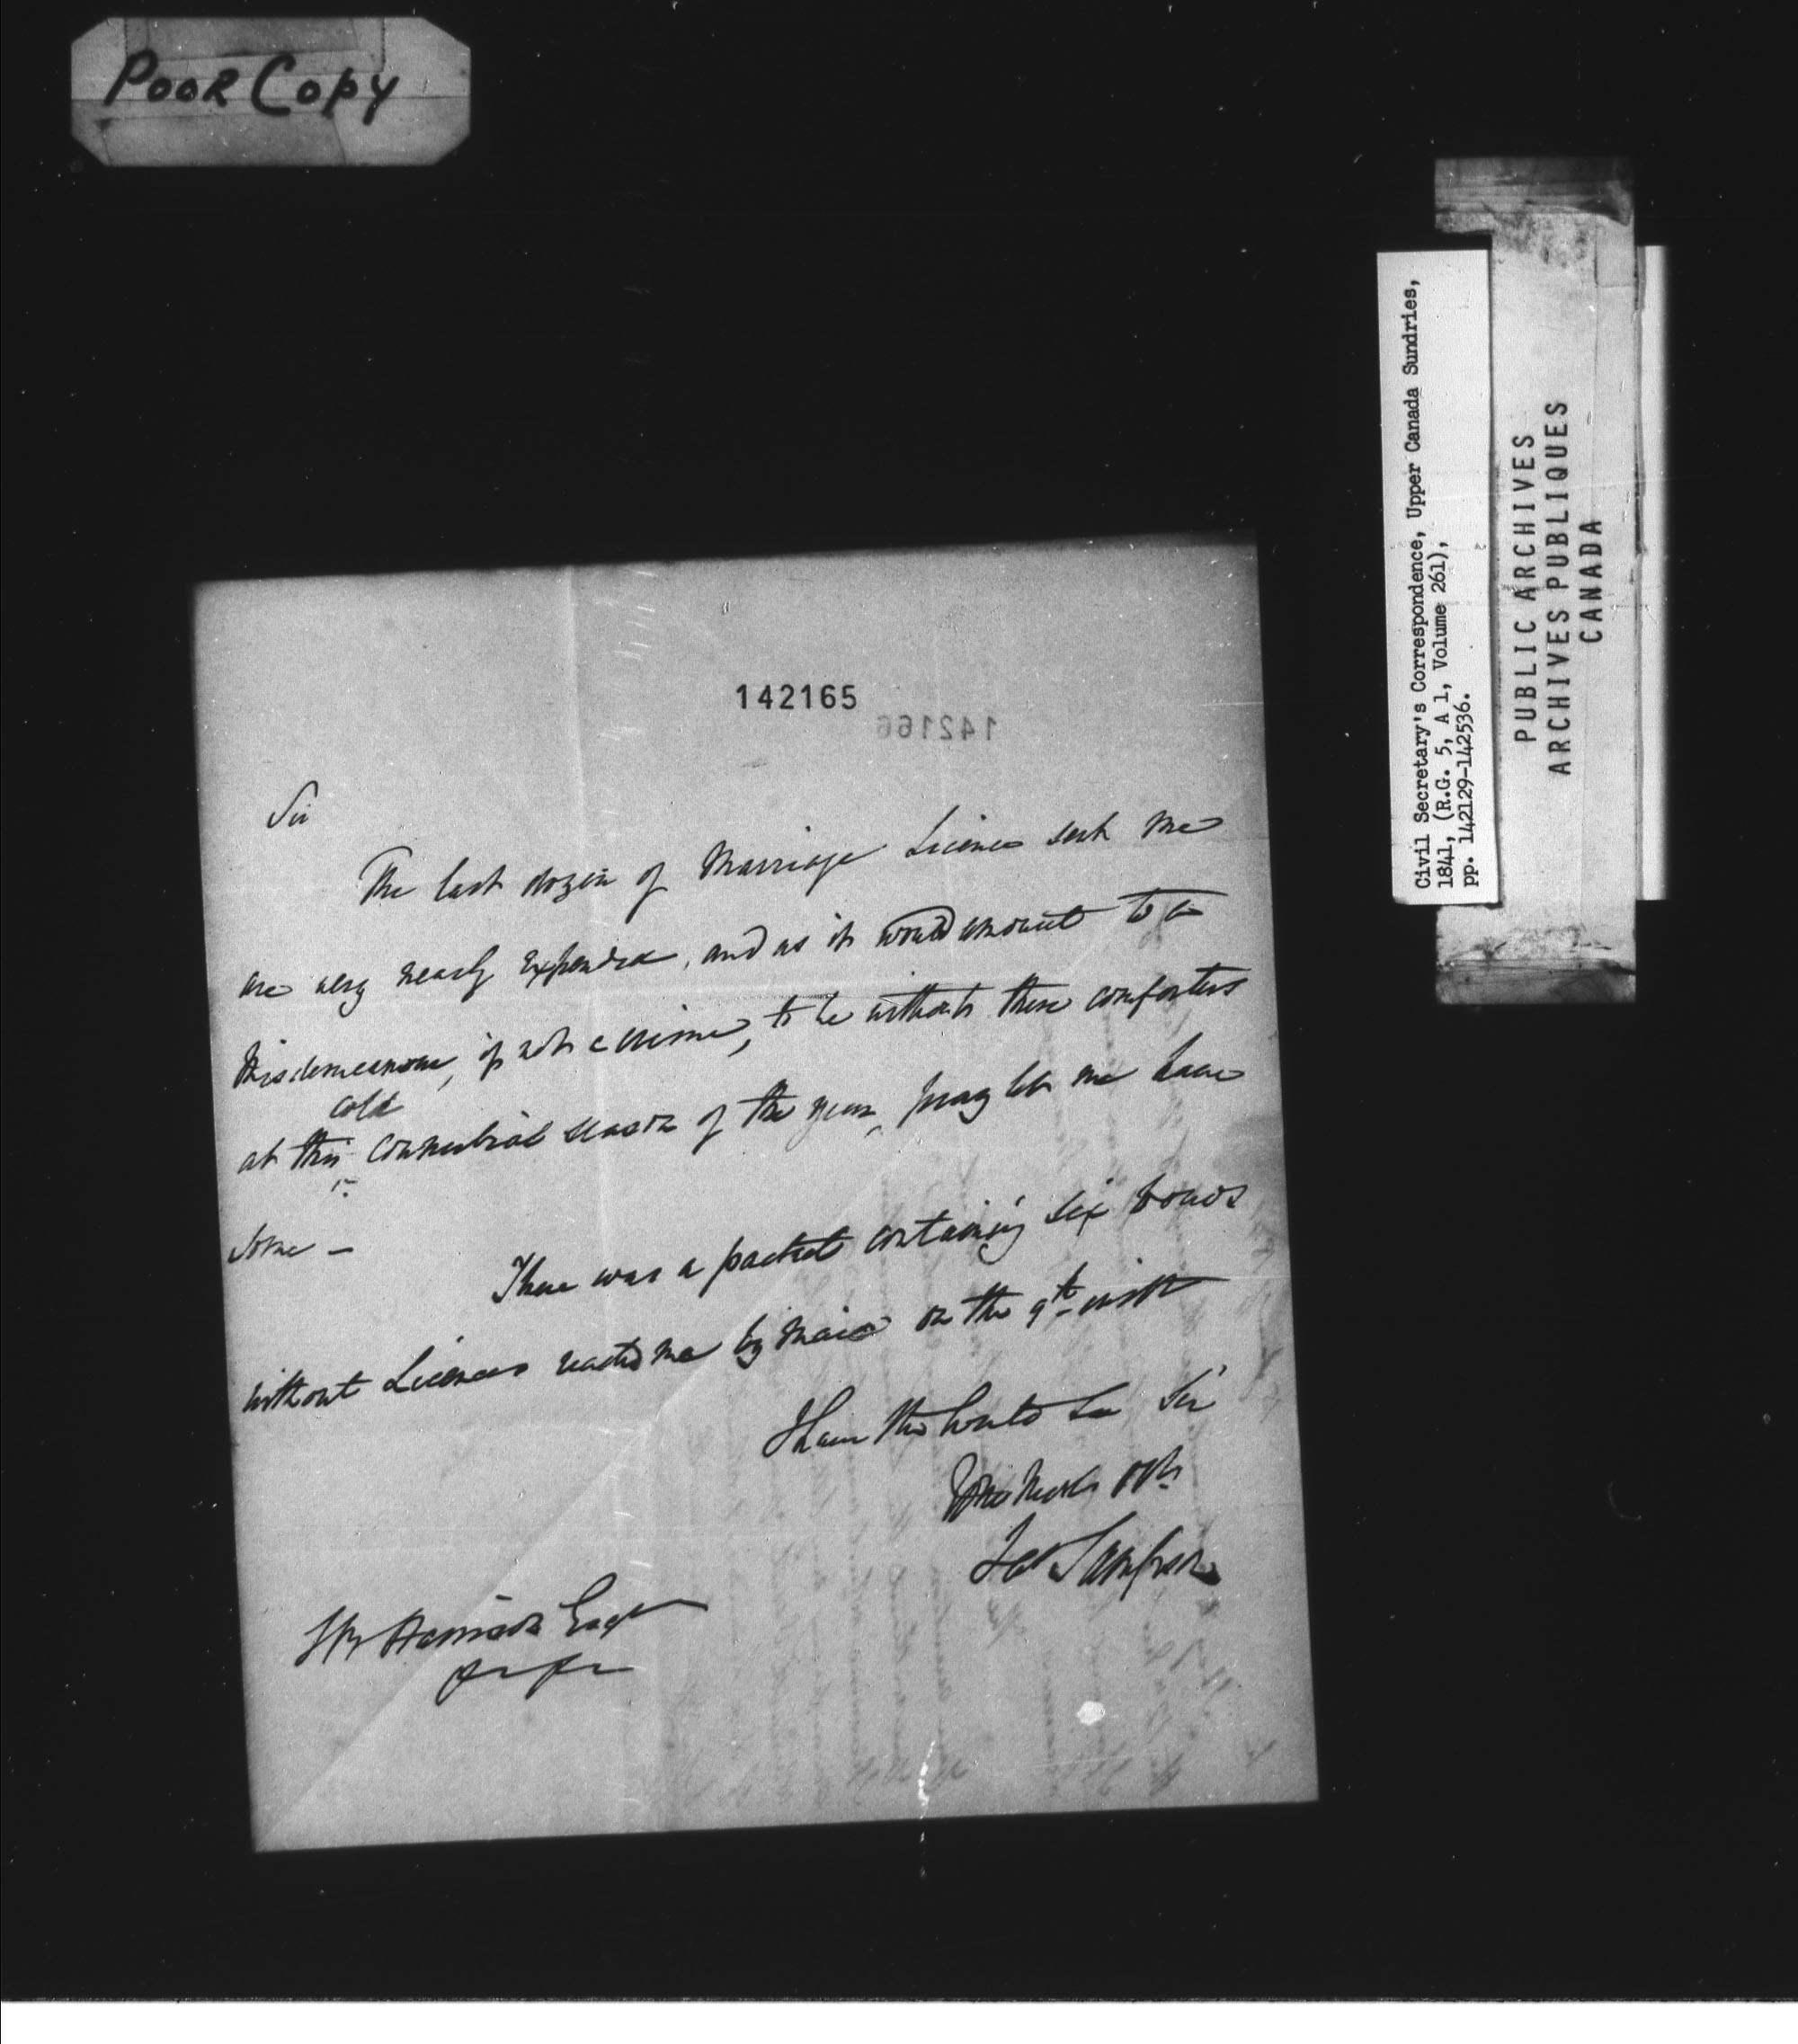 POOR COPY
Civil Secretary's Correspondence, Upper Canada Sundries,
1841, (R.G. 5, A 1, Volume 261),
pp. 142129-142536.
PUBLIC ARCHIVES
ARCHIVES PUBLIQUES
CANADA
142165
142166
Sir
The last dozen of Marriage Licences sent me
are very nearly expended, and as it would amount to a
Misdemeanour, if not a crime, to be without these comforters
cold
at this connubial season of the year, pray let me have
some –
There was a packet containing six bonds
without Licences reached me by Mail on the 9th inst
I have the honor to be Sir
Your
Jas Sampson
Harrison Esqr